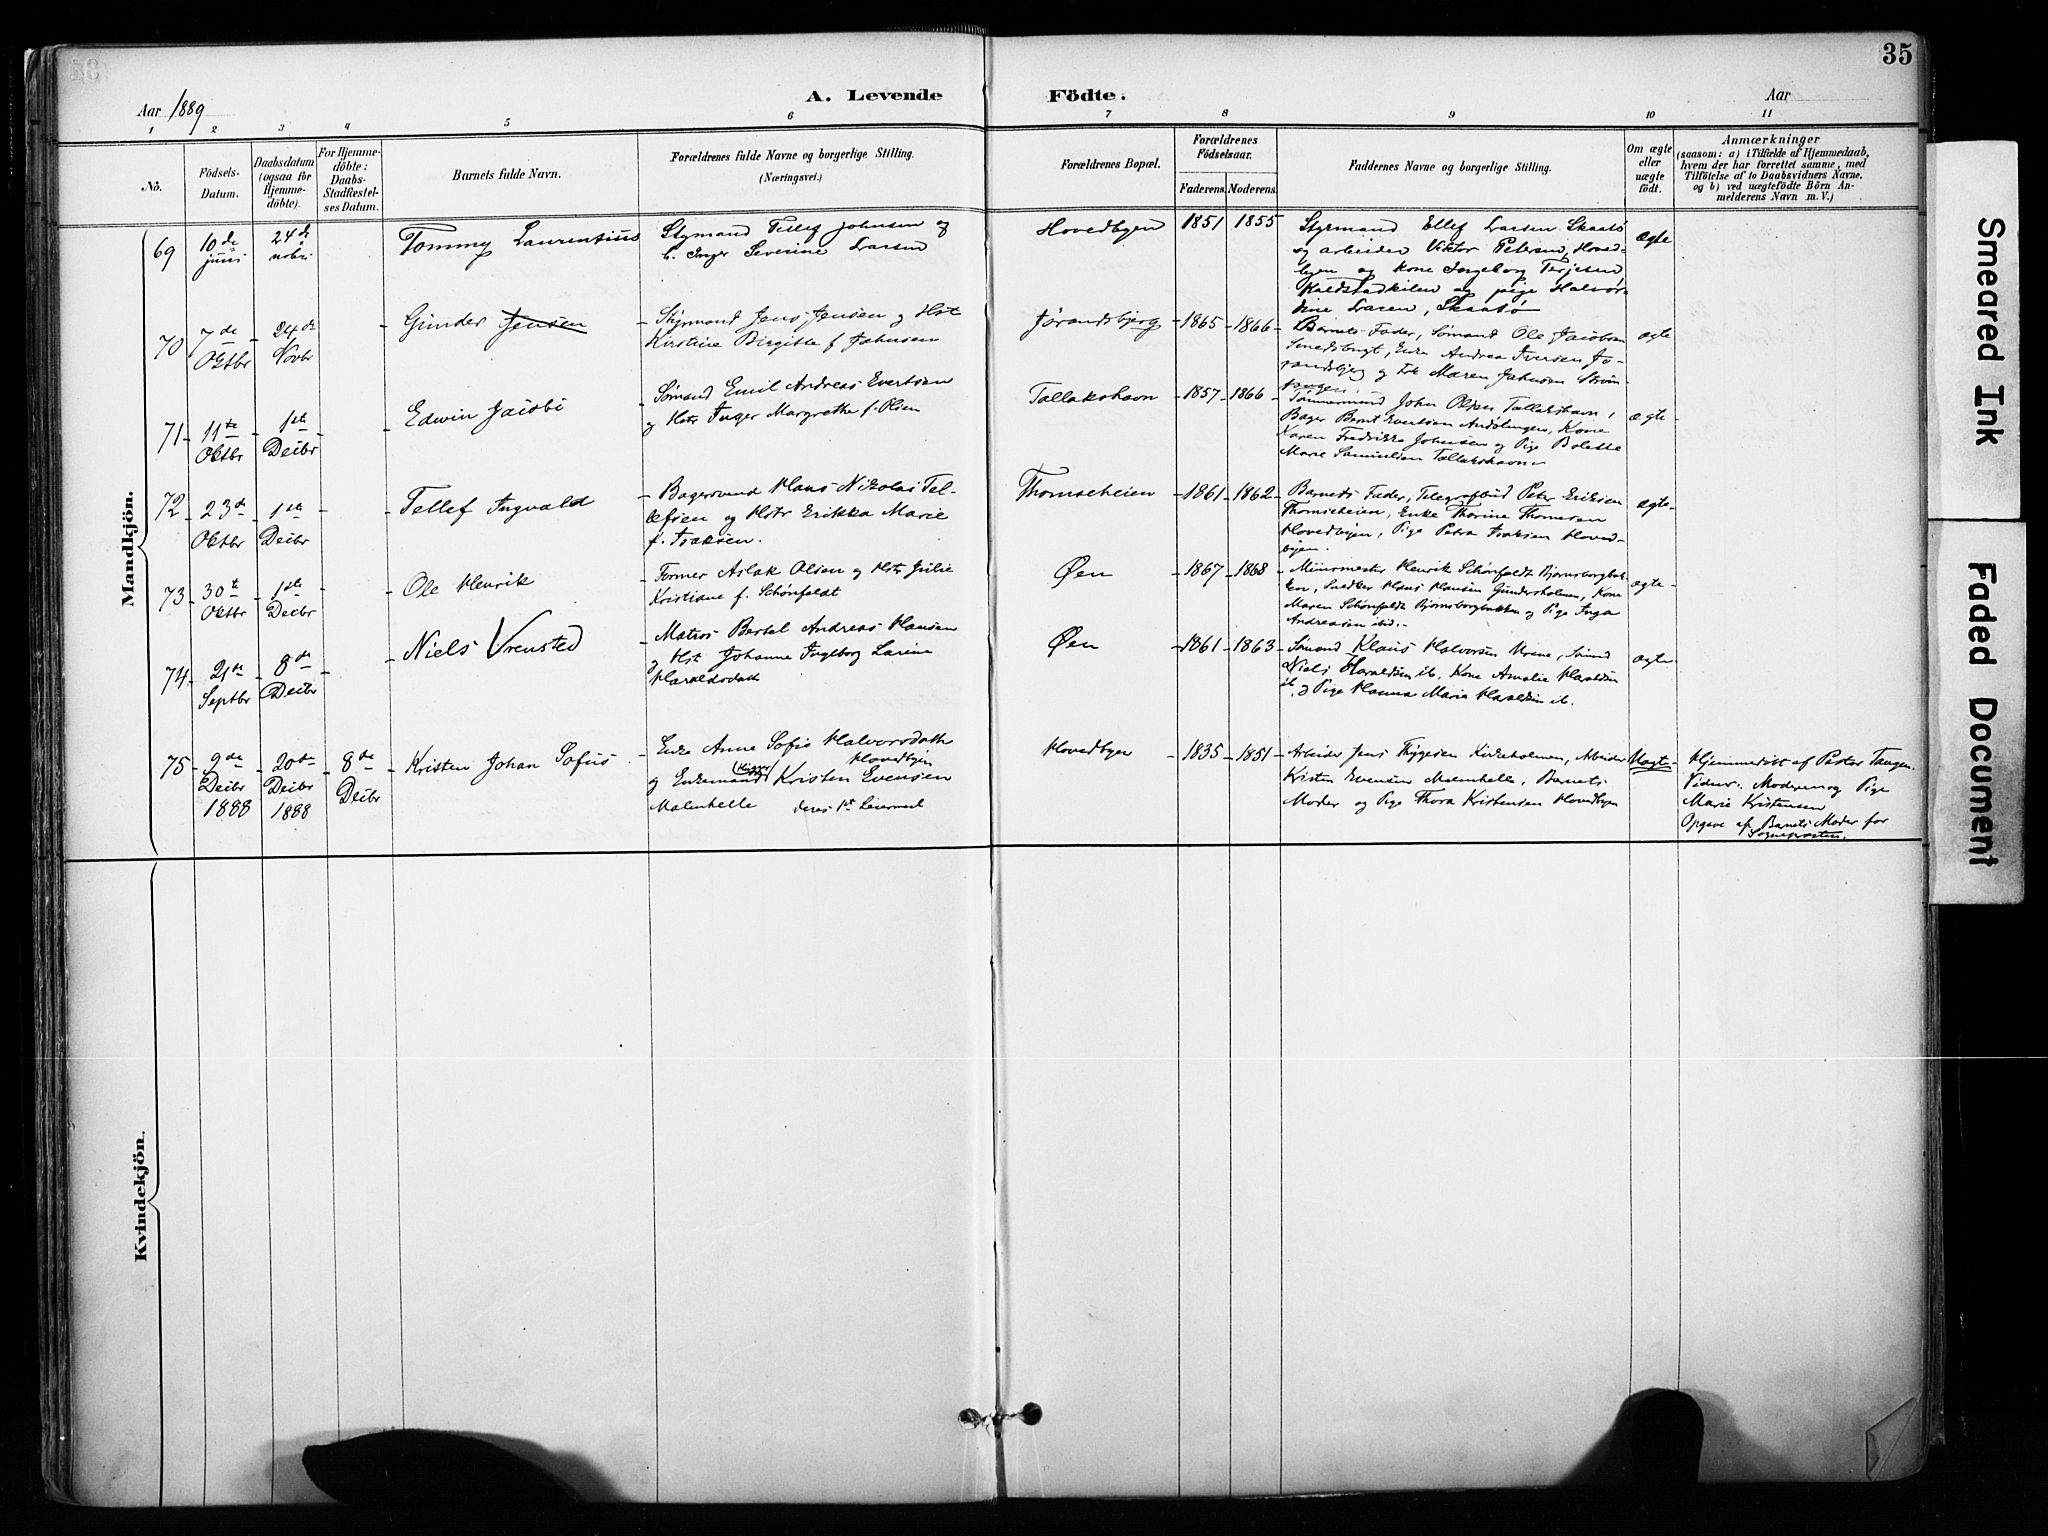 35
Aar 1889
A. Levende Födte.
Aar
1 2 3 4 5 6 7 8 9 10 11
No.
Födsels-
Datum.
Daabsdatum
(ogsaa for
Hjemme-
döbte).
For Hjemme-
döbte:
Daabs-
Stadfæstel-
ses Datum.
Barnets fulde Navn.
Forældrenes fulde Navne og borgerlige Stilling.
(Næringsvei.)
Forældrenes Bopæl.
Forældrenes
Födselsaar.
Faderens. Moderens.
Faddernes Navne og borgerlige Stilling.
Om ægte
eller
uægte
födt.
Anmærkninger
(saasom: a) i Tilfælde af Hjemmedaab,
hvem der har forrettet samme, med
Tilföielse af to Daabsvidners Navne.
og b) ved uægtefödte Börn An-
melderens Navn m. V.)
Mandkjön.
69
10de
juni
24de
nobr
Tommy Laurentius
Styrmand Tellef Johnsen og
h. Inger Severine Larsen
Hovedbyen
1851 1855
Styrmand Ellef Larsen Skaatö
og arbeider Viktor Petersen, Hoved-
byen og Kone Ingeborg Terjesen,
Kaldstadkilen og pige Halvor-
dine Larsen, Skaatö
ægte
70
7de
Oktbr
24de
Novbr
Gunder Jensen
Styrmand Jens Jensen og Hst
Kirstine Birgitte f. Jahnsen
Jørandsbjerg
1865 1866
Barnets Fader, Sømand Ole Jacobsen
Smedsbugt, Enke Andrea Iversen Jø-
randsbjerg og Maren Jahnsen Strøm-
ægte
71
11te
Oktbr
1ste
Decbr
Edwin Jacobi
Sømand Emil Andreas Evertsen
og Hstr Inger Margrethe f. Olsen
Tallakshavn
1857 1866
Tømmermand John Olsen Tallakshavn,
Bager Bernt Evertsen Kone
Karen Fredrikke Johnsen og Pige Bolette
Marie Samuelsen Tallakshavn
ægte
72
23de
Oktbr
1ste
Decbr
Tellef Ingvald
Bagersvend Hans Nikolai Tel-
lefsen og Hstr Erikka Marie
f. Isaksen.
Thomseheien
1861 1862
Barnets Fader, Telegrafbud Peter Eriksen
Thomseheien, Enke Thorine Thomesen
Hovedbyen, Pige Petra Isaksen Hoved-
byen.
ægte
73
30te
Oktbr
1ste
Decbr
Ole Henrik
Former Aslak Olsen og Hst Julie
Kristiane f. Schönfeldt
Øen
1867 1868
Muurmester Henrik Schönfeldt Bjørnsborgbak-
ken, Snedker Hans Hansen Gundersholmen, Kone
Maren Schönfeldt Bjørnsborgbakken og Pige Inga
Andreasen ibid.
ægte
74
21de
Septbr
8de
Decbr
Niels Vrensted
Matros Bertel Andreas Hansen
og Hst Johanne Ingeborg Larine
Haraldsdatt
Øen
1861 1863
Sømand Klaus Halvorsen Sømand
Niels Haraldsen ib, Kone Amalie Haraldsen
ib, og Pige Hanna Marie Haraldsen ib.
ægte
75
9de
Decbr
1888
20de
Decbr
1888
8de
Decbr
Kristen Johan Sofus
Enke Anne Sofie Halvorsdatt
Hovedbyen
og Enkemand Kristen Evensen
Malmhelle deres 1st Leiermaal
Hovedbyen
1835 1851
Arbeider Jens Thygesen Kirkeholmen, Arbeider
Kristen Evensen Malmhelle, Barnets
Moder og Pige Thora Kristensen Hovedbyen
Uægte
Hjemmedøbt af Pastor Tangen.
Vidner: Moderen og Pige
Marie Kristensen
Opgave af Barnets Moder for
Sognepresten.
Kvindekjön.
Smeared Ink
Faded Document